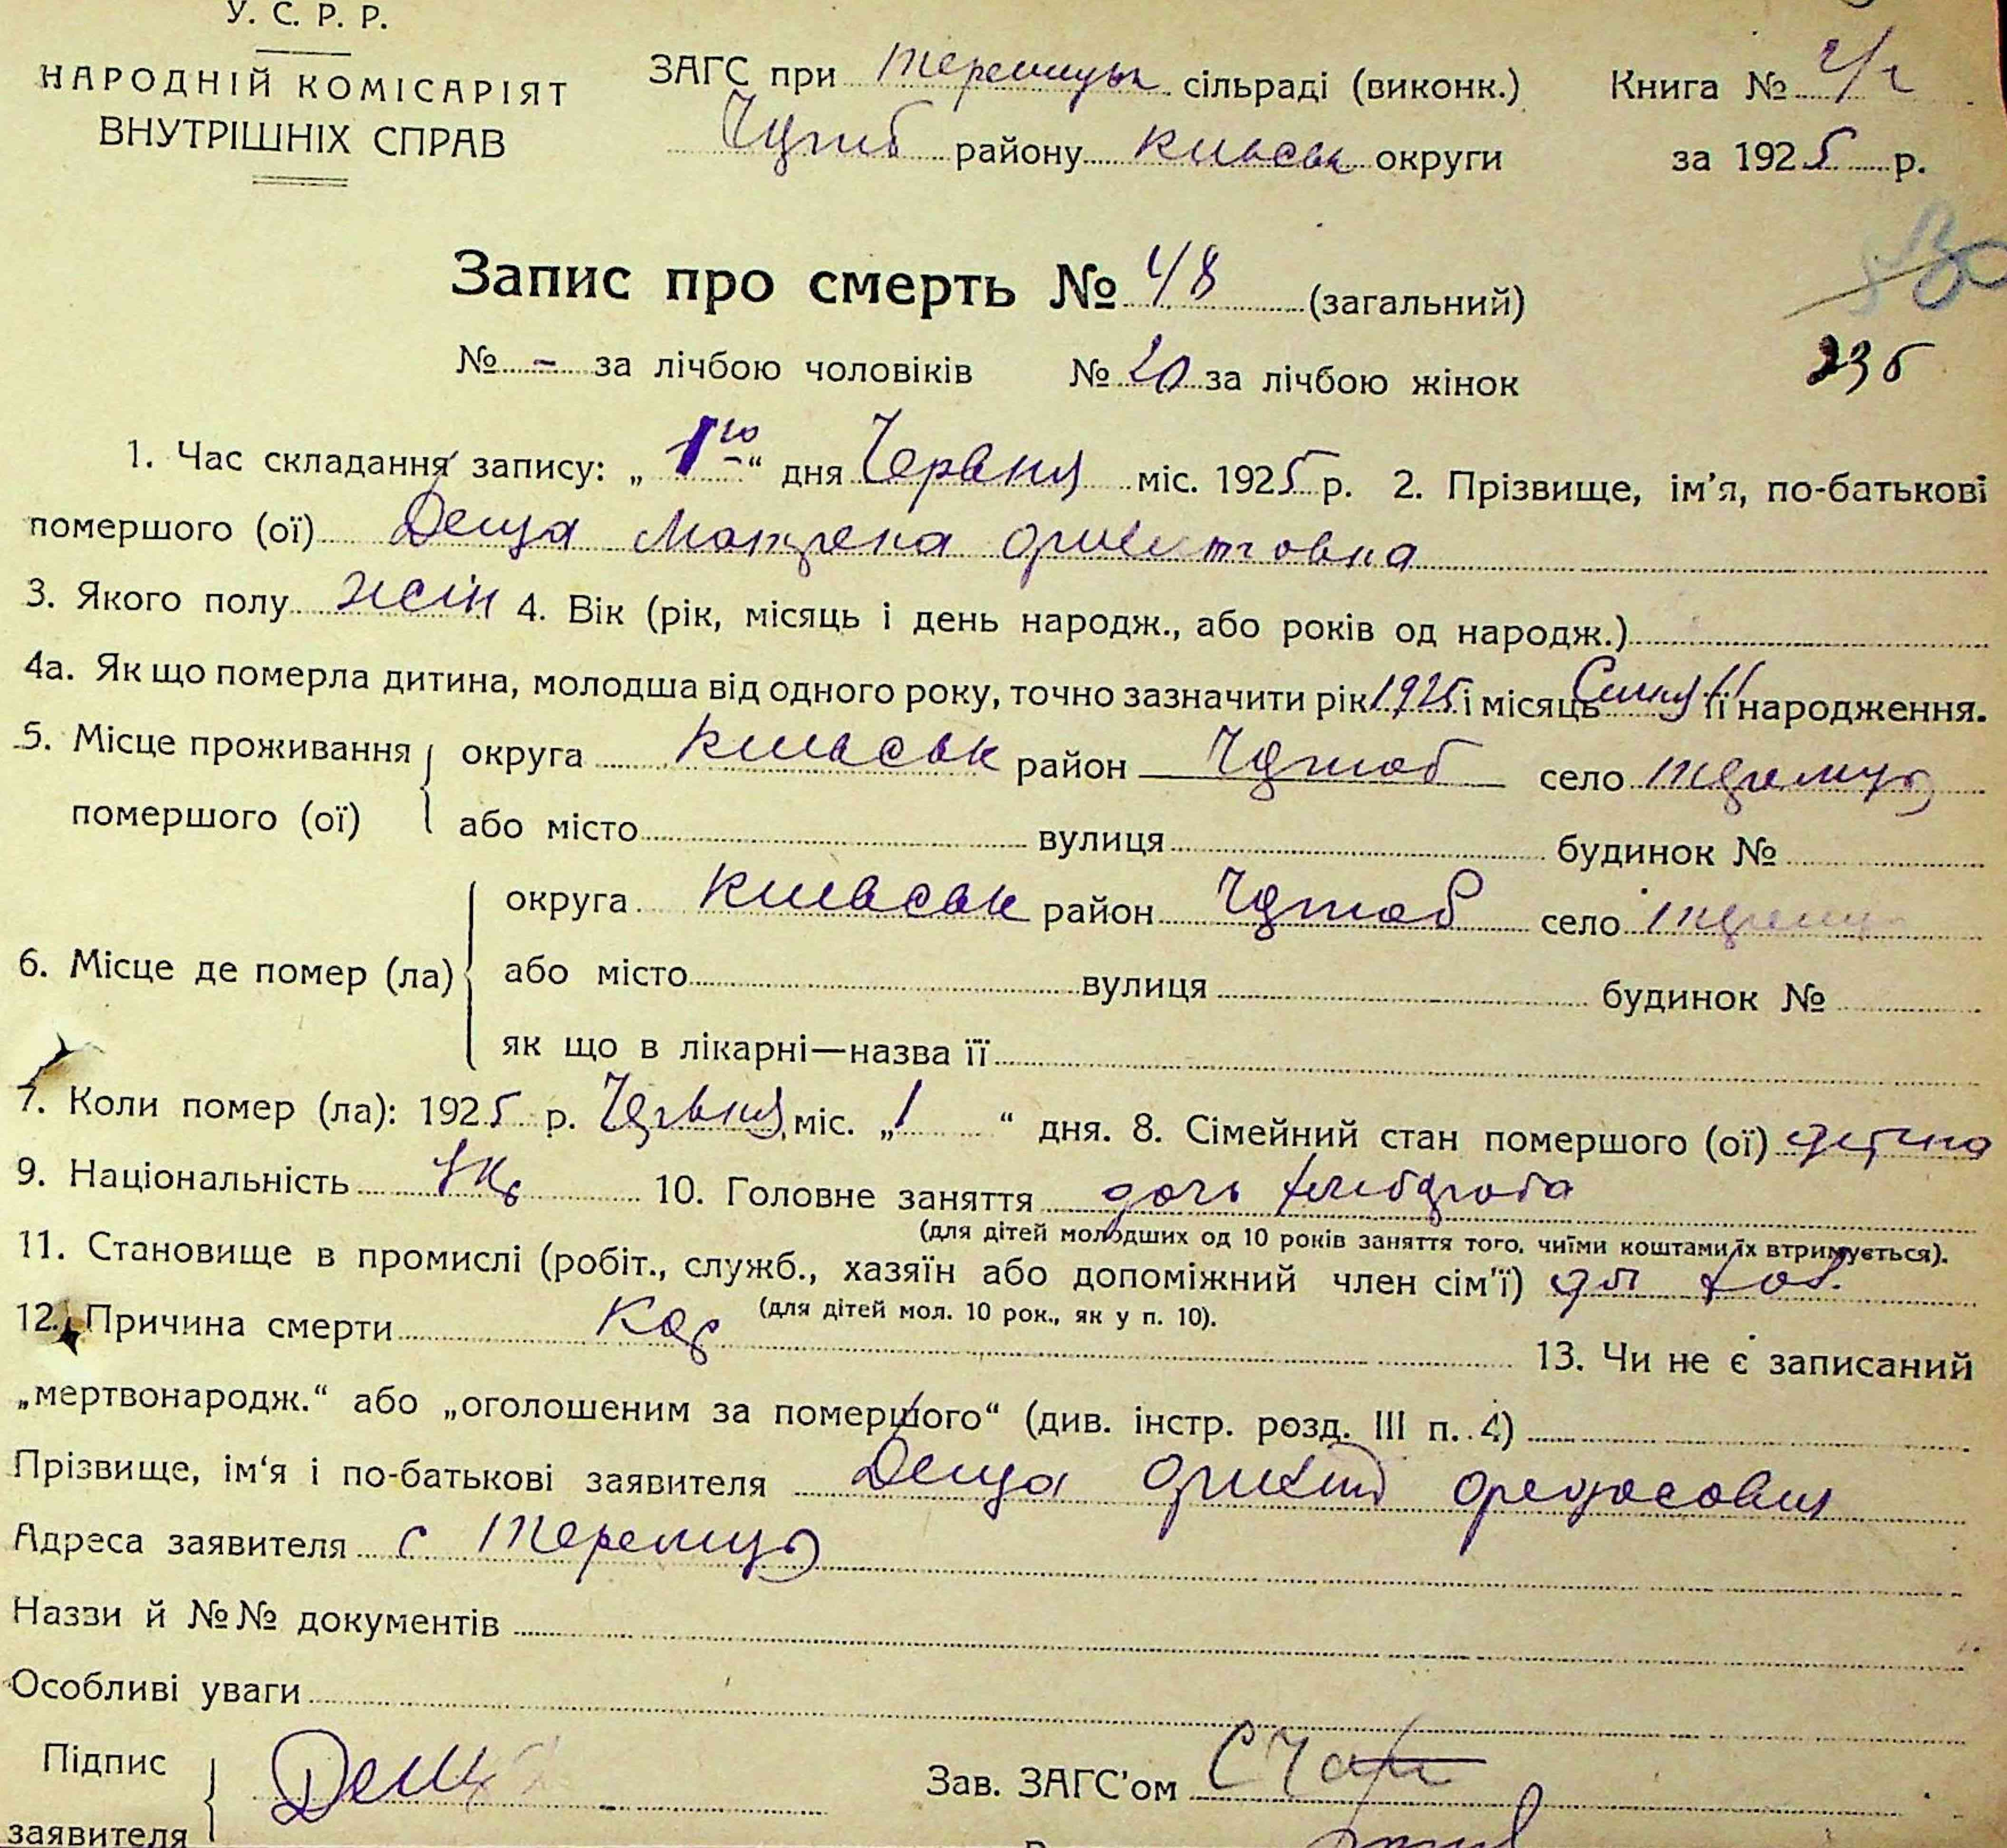 У. С. Р. Р.
НАРОДНІЙ КОМІСАРІЯТ
ВНУТРІШНІХ СПРАВ
ЗАГС при Теремцы сільраді (виконк.)
района району Киівськ округи
Книга №
за 1925 р.
Запис про смерть № 48 (загальний)
№ - за лічбою чоловіків № 20 за лічбою жінок
236
1. Час складання запису: „1го“ дня Червня міс. 1925 р. 2. Прізвище, ім'я, по-батькові
помершого (ої) Деща Мотрена
3. Якого полу жін 4. Вік (рік, місяць і день народж., або років од народж.)
4а. Як що померла дитина, молодша від одного року, точно зазначити рік 1925 і місяць її народження.
5. Місце проживання помершого (ої) округа Киівськ район село Теремцы
або місто вулиця будинок №
6. Місце де помер (ла) округа Киівськ район село Теремц
або місто вулиця будинок №
як що в лікарні—назва її
7. Коли помер (ла): 1925 р. Червня міс. „1“ дня. 8. Сімейний стан помершого (ої) дитина
9. Національність Укр 10. Головне заняття дочь хлібороба
(для дітей молодших од 10 років заняття того, чиїми коштами їх втримується).
11. Становище в промислі (робіт., служб., хазяїн або допоміжний член сім'ї)
(для дітей мол. 10 рок., як у п. 10).
12. Причина смерти Кор 13. Чи не є записаний
„мертвонародж.“ або „оголошеним за помершого“ (див. інстр. розд. III п. 4)
Прізвище, ім'я і по-батькові заявителя Деща
Адреса заявителя с Теремцы
Назви й №№ документів
Особливі уваги
Підпис заявителя Деща
Зав. ЗАГС'ом